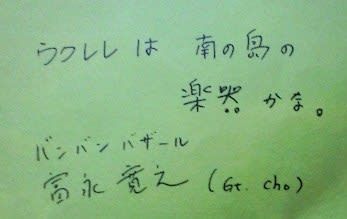 ウクレレは 南の島の
楽器かな。
バンバンバザール
富永寛之 (Gt. cho)